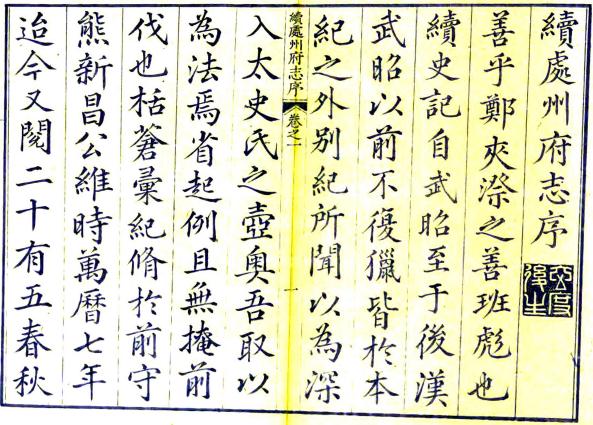 續處州府志序
善乎鄭夾漈之善班彪也
續史記自武昭至于後漢
武昭以前不復獵皆於本
續處州府志序 卷之一 一
紀之外别紀所聞以為深
入太史氏之壼奥吾取以
為法焉省起例且無掩前
伐也栝蒼彙紀脩於前守
熊新昌公維時萬曆七年
迨今又閱二十有五春秋